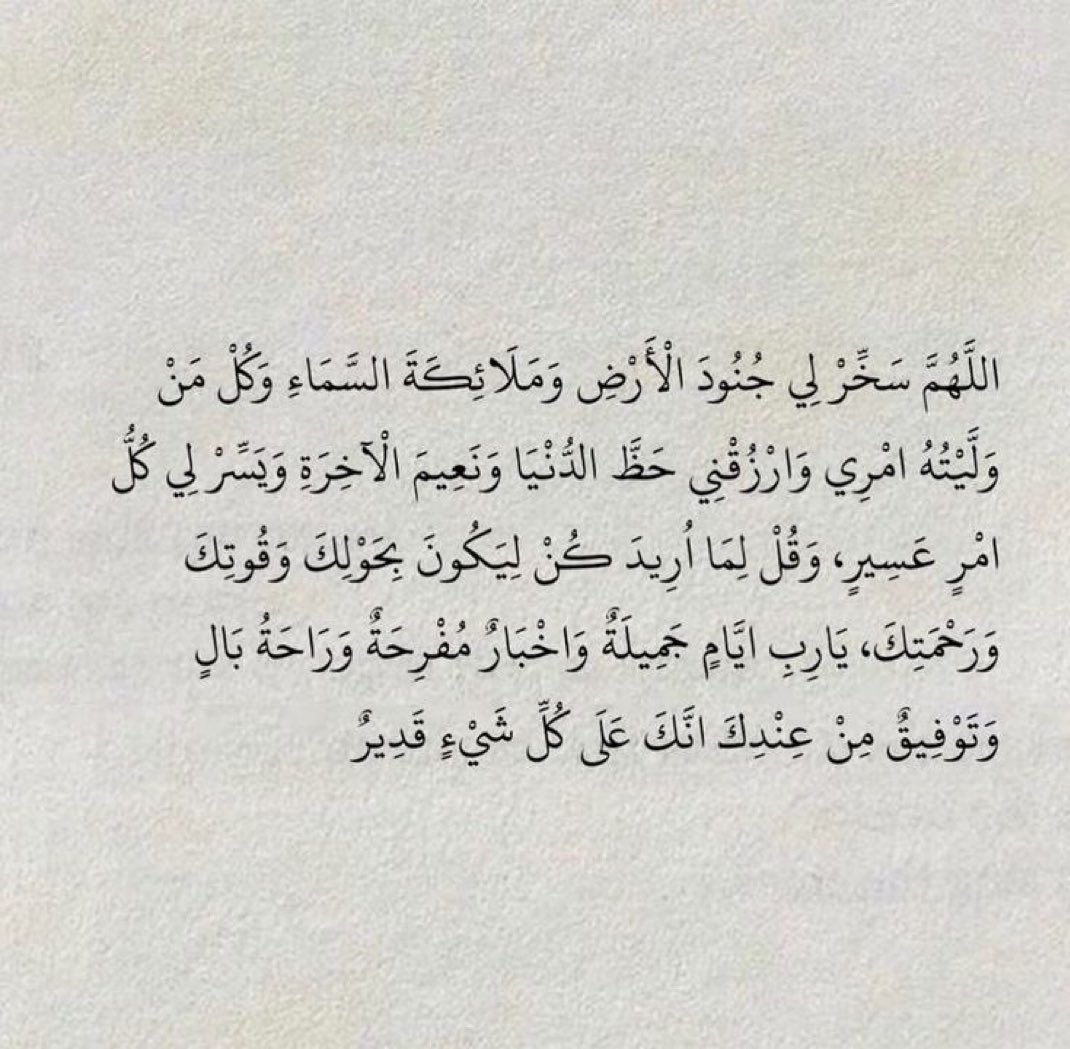 اللَّهُمَّ سَخِّرْ لِي جُنُودَ الْأَرْضِ وَمَلَائِكَةَ السَّمَاءِ وَكُلْ مَنْ
وَلَّيْتُهُ امْرِي وَارْزُقْنِي حَظَّ الدُّنْيَا وَنَعِيمَ الْآخِرَةِ وَيَسِّرْ لِي كُلُّ
امْرٍ عَسِيرٍ، وَقُلْ لِمَا اُرِيدَ كُنْ لِيَكُونَ بِحَوْلِكَ وَقُوتِكَ
وَرَحْمَتِكَ، يَارِبِ ايَّامٍ جَمِيلَةٌ وَاخْبَارٌ مُفْرِحَةٌ وَرَاحَةُ بَالٍ
وَتَوْفِيقٌ مِنْ عِنْدِكَ انَّكَ عَلَى كُلِّ شَيْءٍ قَدِيرٌ